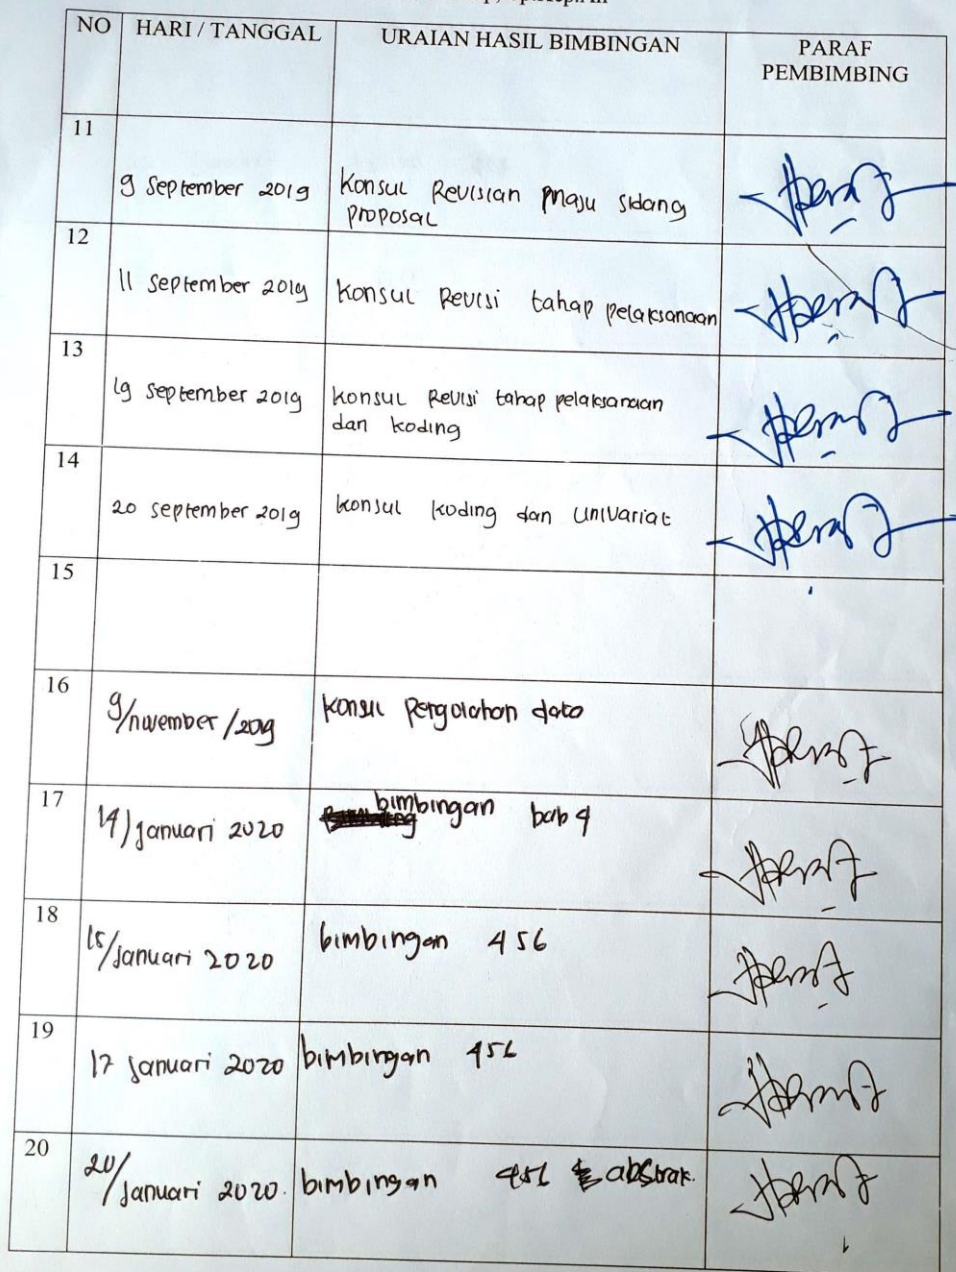 NO HARI / TANGGAL URAIAN HASIL BIMBINGAN PARAF
PEMBIMBING
11
9 September 2019 Konsul Revisian maju sidang
proposal
12
11 September 2019 Konsul Revisi tahap pelaksanaan
13
19 September 2019 Konsul Revisi tahap pelaksanaan
dan koding
14
20 September 2019 Konsul koding dan univariat
15
16
9/november/2019 Konsul Pergolahan data
17
14/Januari 2020 bimbingan bab 4
18
15/Januari 2020 bimbingan 456
19
17 Januari 2020 bimbingan 456
20
20/Januari 2020. bimbingan 456 & abstrak.